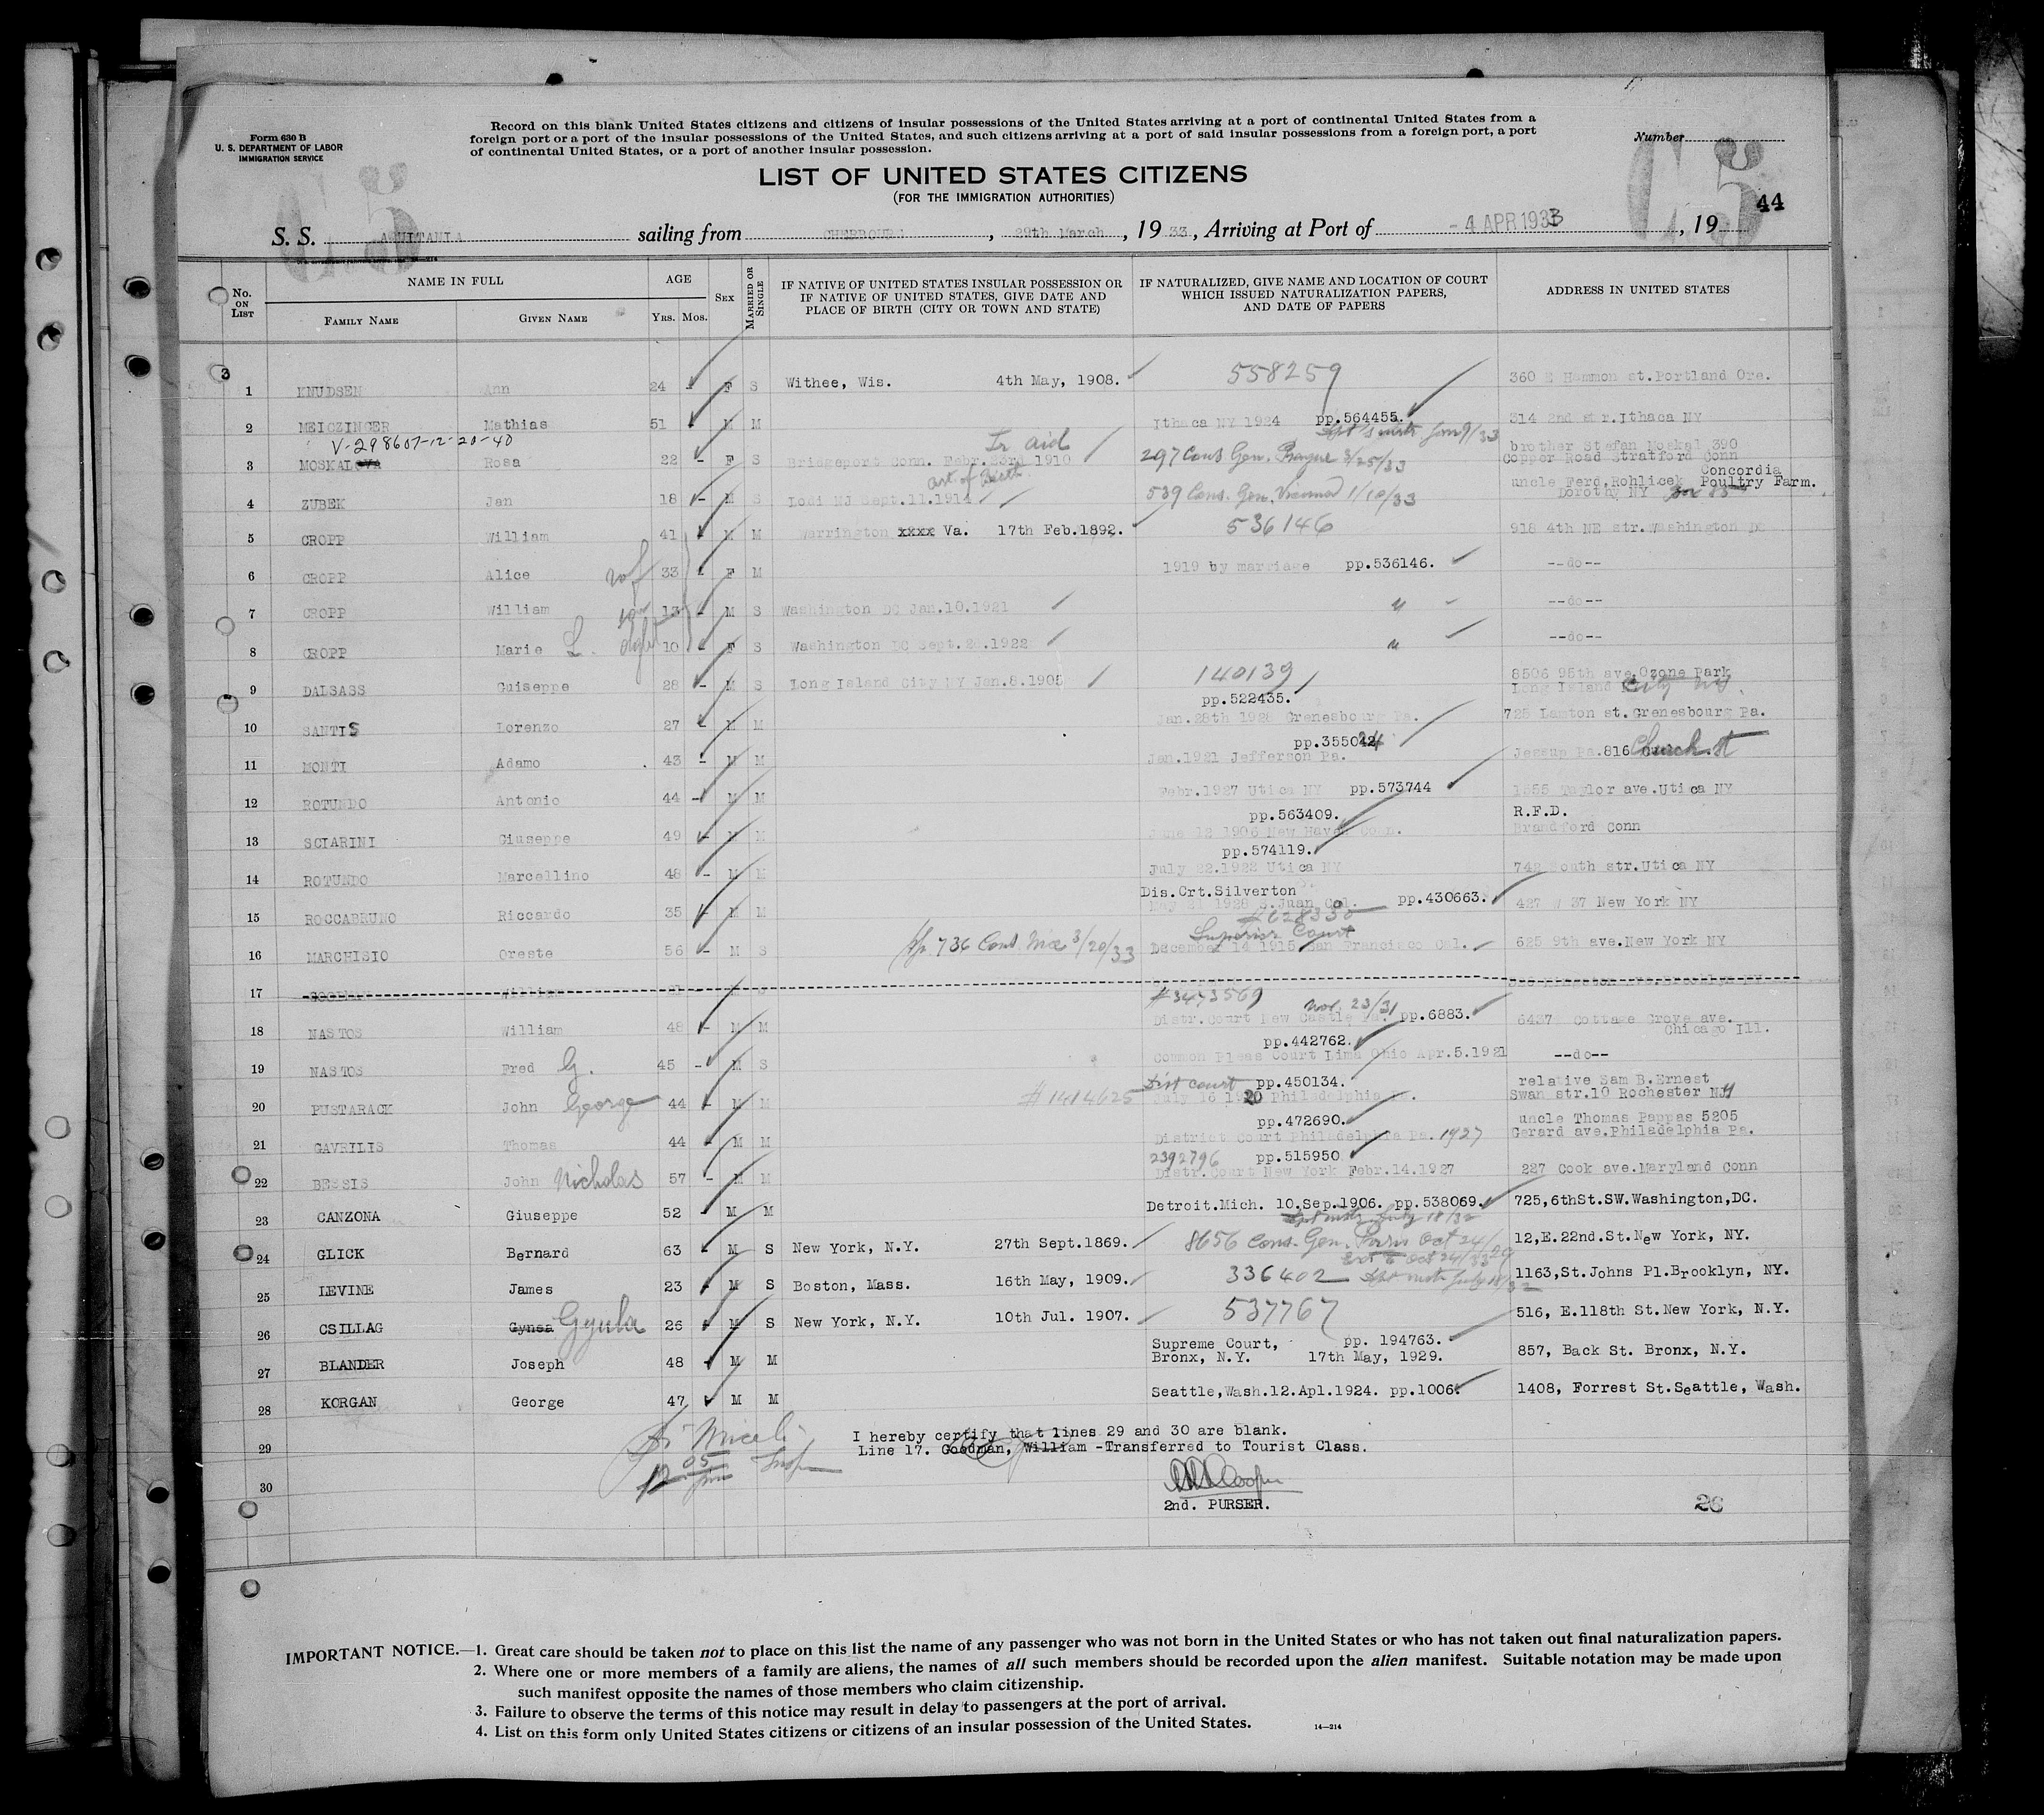 Form 630 B
U. S. DEPARTMENT OF LABOR
IMMIGRATION SERVICE
Record on this blank United States citizens and citizens of insular possessions of the United States arriving at a port of continental United States from a
foreign port or a port of the insular possessions of the United States, and such citizens arriving at a port of said insular possessions from a foreign port, a port
of continental United States, or a port of another insular possession.
Number
LIST OF UNITED STATES CITIZENS
(FOR THE IMMIGRATION AUTHORITIES)
44
S. S. AQUITANIA sailing from CHERBOURG, 29th March, 1933, Arriving at Port of -4 APR 1933, 19
No. ON LIST NAME IN FULL AGE SEX MARRIED OR SINGLE IF NATIVE OF UNITED STATES INSULAR POSSESSION OR IF NATIVE OF UNITED STATES, GIVE DATE AND PLACE OF BIRTH (CITY OR TOWN AND STATE) IF NATURALIZED, GIVE NAME AND LOCATION OF COURT WHICH ISSUED NATURALIZATION PAPERS, AND DATE OF PAPERS ADDRESS IN UNITED STATES
FAMILY NAME GIVEN NAME YRS. MOS.
3
1 KNUDSEN Ann 24 - F S Withee, Wis. 4th May, 1908. 558259 360 E Hammon st.Portland Ore.
2 MEICZINGER Mathias 51 M M Ithaca NY 1924 pp.564455. 314 2nd str.Ithaca NY
V-298607-12-20-40
3 MOSKALOVA Rosa 22 - F S Bridgeport Conn. Febr.23rd 1910 297 Cons Gen. Prague 3/25/33 brother Stefan Moskal 390 Copper Road Stratford Conn
4 ZUBEK Jan 18 - M S Lodi NJ Sept.11.1914 539 Cons. Gen. 1/10/33 uncle Ferd.Rohlicek Concordia Poultry Farm. Dorothy NY Box 85
5 CROPP William 41 - M M Warrington xxxx Va. 17th Feb.1892. 536146 918 4th NE str.Washington DC
6 CROPP Alice wf 33 - F M 1919 by marriage pp.536146. --do--
7 CROPP William son 13 - M S Washington DC Jan.10.1921 " --do--
8 CROPP Marie L. dght 10 - F S Washington DC Sept.20.1922 " --do--
9 DALSASS Guiseppe 28 - M S Long Island City NY Jan.8.1905 140139 8506 95th ave.Ozone Park Long Island City NY.
10 SANTIS Lorenzo 27 - M M pp.522435. Jan.28th 1928 Grenesbourg Pa. 725 Lamton st.Grenesbourg Pa.
11 MONTI Adamo 43 - M M pp.355024 Jan.1921 Jefferson Pa. Jessup Pa.816 Church St
12 ROTUNDO Antonio 44 - M M Febr.1927 Utica NY pp.573744 1355 Taylor ave.Utica NY
13 SCIARINI Giuseppe 49 - M M pp.563409. June 12 1906 New Haven Conn. R.F.D. Brandford Conn
14 ROTUNDO Marcellino 48 - M M pp.574119. July 22.1922 Utica NY 742 South str.Utica NY
15 ROCCABRUNO Riccardo 35 - M M Dis.Crt.Silverton May 21 1928 S.Juan Col. pp.430663. 427 W 37 New York NY
16 MARCHISIO Oreste 56 - M S 736 Cons. Nice 3/20/33 #628330 Superior Court December 14 1915 San Francisco Cal. 625 9th ave.New York NY
17 GOODMAN William
18 NASTOS William 48 - M M #3473569 Nov. 23/31 Distr.Court New Castle Pa. pp.6883. 6437 Cottage Grove ave. Chicago Ill.
19 NASTOS Fred G. 45 - M S pp.442762. Common Pleas Court Lima Ohio Apr.5.1921 --do--
20 PUSTARACK John George 44 - M M #1414625 Dist court pp.450134. July 16 1920 Philadelphia Pa. relative Sam B.Ernest Swan str.10 Rochester NY
21 GAVRILIS Thomas 44 - M M pp.472690. District Court Philadelphia Pa. 1927 uncle Thomas Pappas 5205 Gerard ave.Philadelphia Pa.
22 BESSIS John Nicholas 57 - M M 2392796 pp.515950 Distr.Court New York Febr.14.1927 227 Cook ave.Maryland Conn
23 CANZONA Giuseppe 52 - M M Detroit.Mich. 10.Sep.1906. pp.538069. 725,6thSt.SW.Washington,DC.
24 GLICK Bernard 63 - M S New York, N.Y. 27th Sept.1869. 8656 Cons. Gen. Paris Oct 24/ 12,E.22nd.St.New York, NY.
25 LEVINE James 23 - M S Boston, Mass. 16th May, 1909. 336402 1163,St.Johns Pl.Brooklyn, NY.
26 CSILLAG Gynea Gyula 26 - M S New York, N.Y. 10th Jul. 1907. 537767 516, E.118th St.New York, N.Y.
27 BLANDER Joseph 48 - M M Supreme Court, pp. 194763. Bronx, N.Y. 17th May, 1929. 857, Back St. Bronx, N.Y.
28 KORGAN George 47 - M M Seattle,Wash.12.Apl.1924. pp.1006. 1408, Forrest St.Seattle, Wash.
29 I hereby certify that lines 29 and 30 are blank.
Line 17. Goodman, William -Transferred to Tourist Class.
30
2nd. PURSER.
26
IMPORTANT NOTICE.—1. Great care should be taken not to place on this list the name of any passenger who was not born in the United States or who has not taken out final naturalization papers.
2. Where one or more members of a family are aliens, the names of all such members should be recorded upon the alien manifest. Suitable notation may be made upon
such manifest opposite the names of those members who claim citizenship.
3. Failure to observe the terms of this notice may result in delay to passengers at the port of arrival.
4. List on this form only United States citizens or citizens of an insular possession of the United States.
14—214